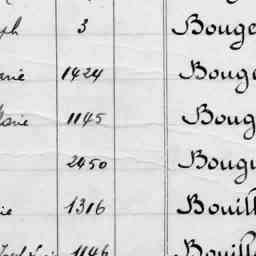 ph 3 Bouge
arie 1424 Boug
Marie 1145 Boug
2450 Bougu
ie 1316 Bouill
1146 Bouill